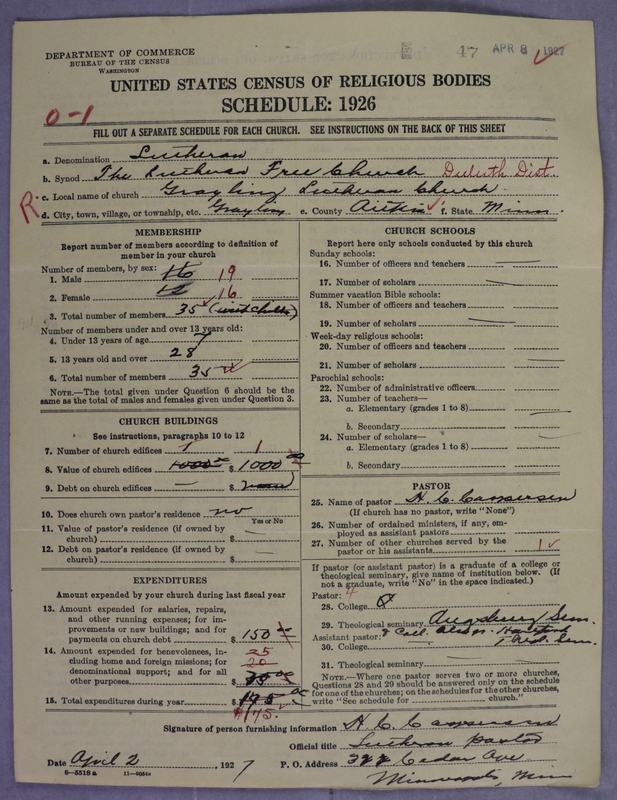 47 APR 8 1927
DEPARTMENT OF COMMERCE
BUREAU OF THE CENSUS
WASHINGTON
UNITED STATES CENSUS OF RELIGIOUS BODIES
SCHEDULE: 1926
0-1
FILL OUT A SEPARATE SCHEDULE FOR EACH CHURCH. SEE INSTRUCTIONS ON THE BACK OF THIS SHEET
a. Denomination Lutheran
b. Synod The Lutheran Free Church Duluth Dist.
c. Local name of church Grayling Lutheran Church
R d. City, town, village, or township, etc. Grayling e. County Aitkin f. State Minn.
MEMBERSHIP
Report number of members according to definition of
member in your church
Number of members, by sex:
1. Male 16 19
2. Female 12 16
3. Total number of members 35
Number of members under and over 13 years old:
4. Under 13 years of age 7
5. 13 years old and over 28
6. Total number of members 35
NOTE.—The total given under Question 6 should be the
same as the total of males and females given under Question 3.
CHURCH BUILDINGS
See instructions, paragraphs 10 to 12
7. Number of church edifices 1 1
8. Value of church edifices 1000 $ 1000 00
9. Debt on church edifices — $
10. Does church own pastor's residence? no
Yes or No
11. Value of pastor's residence (if owned by
church) $
12. Debt on pastor's residence (if owned by
church) $
EXPENDITURES
Amount expended by your church during last fiscal year
13. Amount expended for salaries, repairs,
and other running expenses; for im-
provements or new buildings; and for
payments on church debt $ 150
14. Amount expended for benevolences, in- 25
cluding home and foreign missions; for 20
denominational support; and for all
other purposes $
15. Total expenditures during year $ 175
$175.
CHURCH SCHOOLS
Report here only schools conducted by this church
Sunday schools:
16. Number of officers and teachers
17. Number of scholars
Summer vacation Bible schools:
18. Number of officers and teachers
19. Number of scholars
Week-day religious schools:
20. Number of officers and teachers
21. Number of scholars
Parochial schools:
22. Number of administrative officers
23. Number of teachers—
a. Elementary (grades 1 to 8)
b. Secondary
24. Number of scholars—
a. Elementary (grades 1 to 8)
b. Secondary
PASTOR
25. Name of pastor H. C. Caspersen
(If church has no pastor, write "None")
26. Number of ordained ministers, if any, em-
ployed as assistant pastors
27. Number of other churches served by the
pastor or his assistants 1
If pastor (or assistant pastor) is a graduate of a college or
theological seminary, give name of institution below. (If
not a graduate, write "No" in the space indicated.)
Pastor: 4
28. College
29. Theological seminary Augsburg Sem.
Assistant pastor: & Coll. also Hartford
30. College Theol. Sem.
31. Theological seminary
NOTE.—Where one pastor serves two or more churches,
Questions 28 and 29 should be answered only on the schedule
for one of the churches; on the schedules for the other churches,
write "See schedule for church."
Signature of person furnishing information H. C. Caspersen
Official title Lutheran pastor
Date April 2, 1927 P. O. Address Cedar Ave
6-5518a 11-9054 Minneapolis, Minn